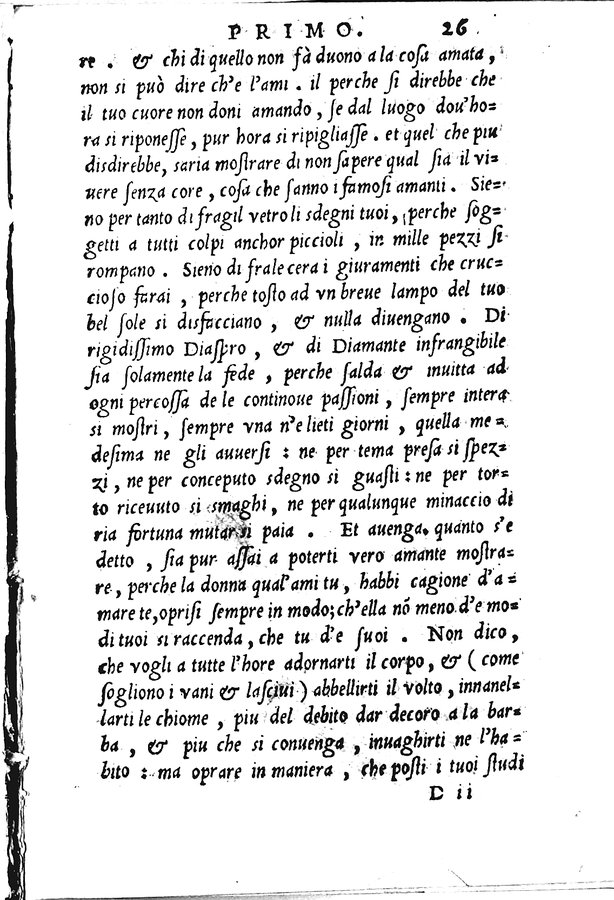 PRIMO. 26
re . & chi di quello non fà duono a la coſa amata ,
non si può dire ch'e l'ami . il perche ſi direbbe che
il tuo cuore non doni amando , ſe dal luogo dou'ho=
ra si riponeſſe , pur hora si ripigliaſſe . et quel che piu
disdirebbe, saria moſtrare di non ſapere qual ſia il vi=
uere ſenza core , coſa che ſanno i famoſi amanti . Sie=
no per tanto di fragil vetro li sdegni tuoi, perche ſog=
getti a tutti colpi anchor piccioli , in mille pezzi ſi
rompano . Sieno di frale cera i giuramenti che cruc=
cioſo farai , perche toſto ad vn breue lampo del tuo
bel ſole si disfacciano , & nulla diuengano . Di
rigidiſſimo Diaſpro , & di Diamante infrangibile
ſia ſolamente la fede , perche ſalda & inuitta ad
ogni percoſſa de le continoue paſſioni , ſempre intera
si moſtri , ſempre vna n'e lieti giorni , quella me=
deſima ne gli auuerſi : ne per tema preſa si ſpez=
zi , ne per conceputo sdegno si guaſti : ne per tor=
to riceuuto si smaghi , ne per qualunque minaccio di
ria fortuna mutarsi paia . Et auenga quanto s'e
detto , ſia pur aſſai a poterti vero amante moſtra=
re , perche la donna qual'ami tu , habbi cagione d'a=
mare te, opriſi ſempre in modo; ch'ella nõ meno d'e mo=
di tuoi si raccenda , che tu d'e ſuoi . Non dico ,
che vogli a tutte l'hore adornarti il corpo , & ( come
ſogliono i vani & laſciui ) abbellirti il volto , innanel=
larti le chiome , piu del debito dar decoro a la bar=
ba , & piu che si conuenga , inuaghirti ne l'ha=
bito : ma oprare in maniera , che poſti i tuoi ſtudi
D ii